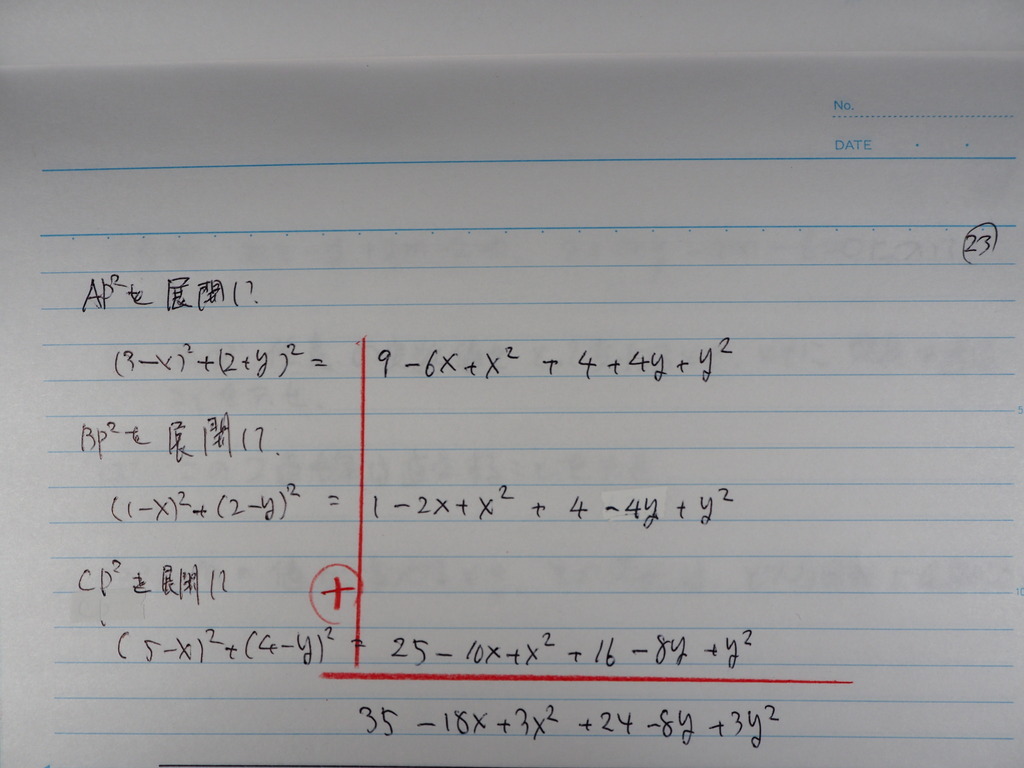 No.
DATE
23
AP²を展開して
(3-x)²+(2+y)² = 9-6x+x² + 4+4y+y²
BP²を展開して
(1-x)²+(2-y)² = 1-2x+x² + 4-4y+y²
CP²を展開して
+
(5-x)²+(4-y)² = 25-10x+x²+16-8y+y²
35-18x+3x²+24-8y+3y²
5
10